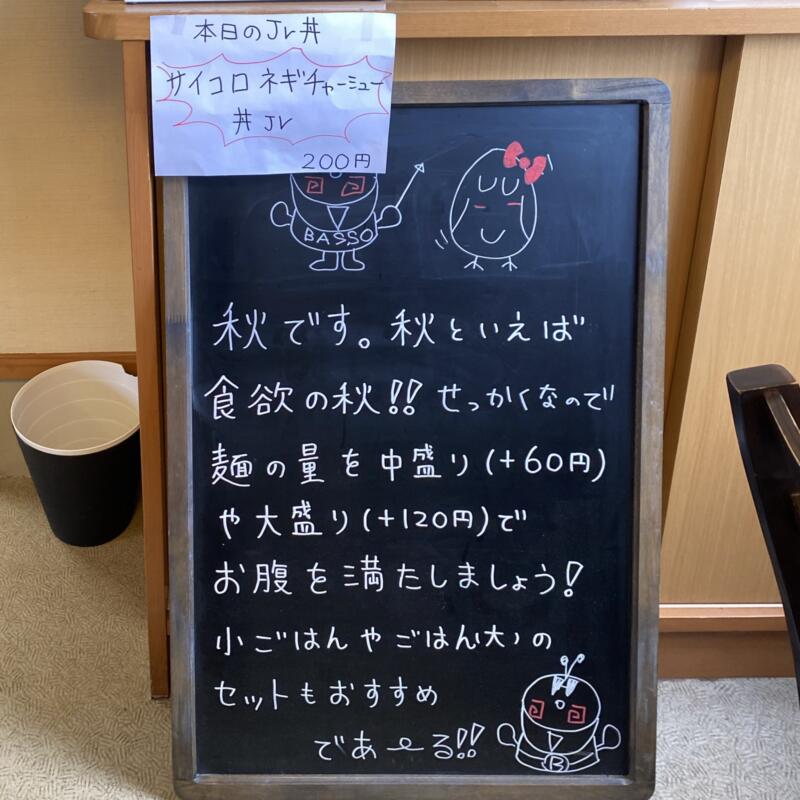 本日のJr丼
サイコロ ネギチャーシュー
丼 Jr
200円
BASSO
秋です。秋といえば
食欲の秋!! せっかくなので
麺の量を中盛り(+60円)
や大盛り(+120円)で
お腹を満たしましょう!
小ごはんやごはん大の
セットもおすすめ
であ〜る!!
B